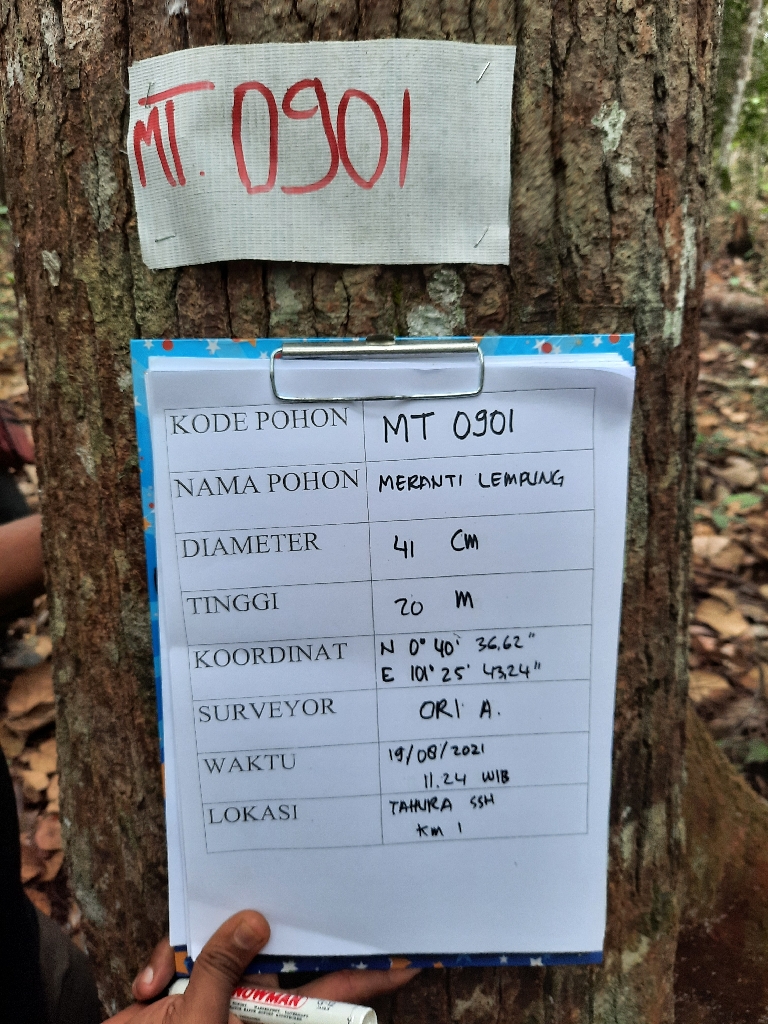 MT. 0901
KODE POHON MT 0901
NAMA POHON MERANTI LEMPUNG
DIAMETER 41 Cm
TINGGI 20 M
KOORDINAT N 0° 40' 36,62"
E 101° 25' 43,24"
SURVEYOR ORI A.
WAKTU 19/08/2021
11.24 WIB
LOKASI TAHURA SSH
KM 1
SNOWMAN